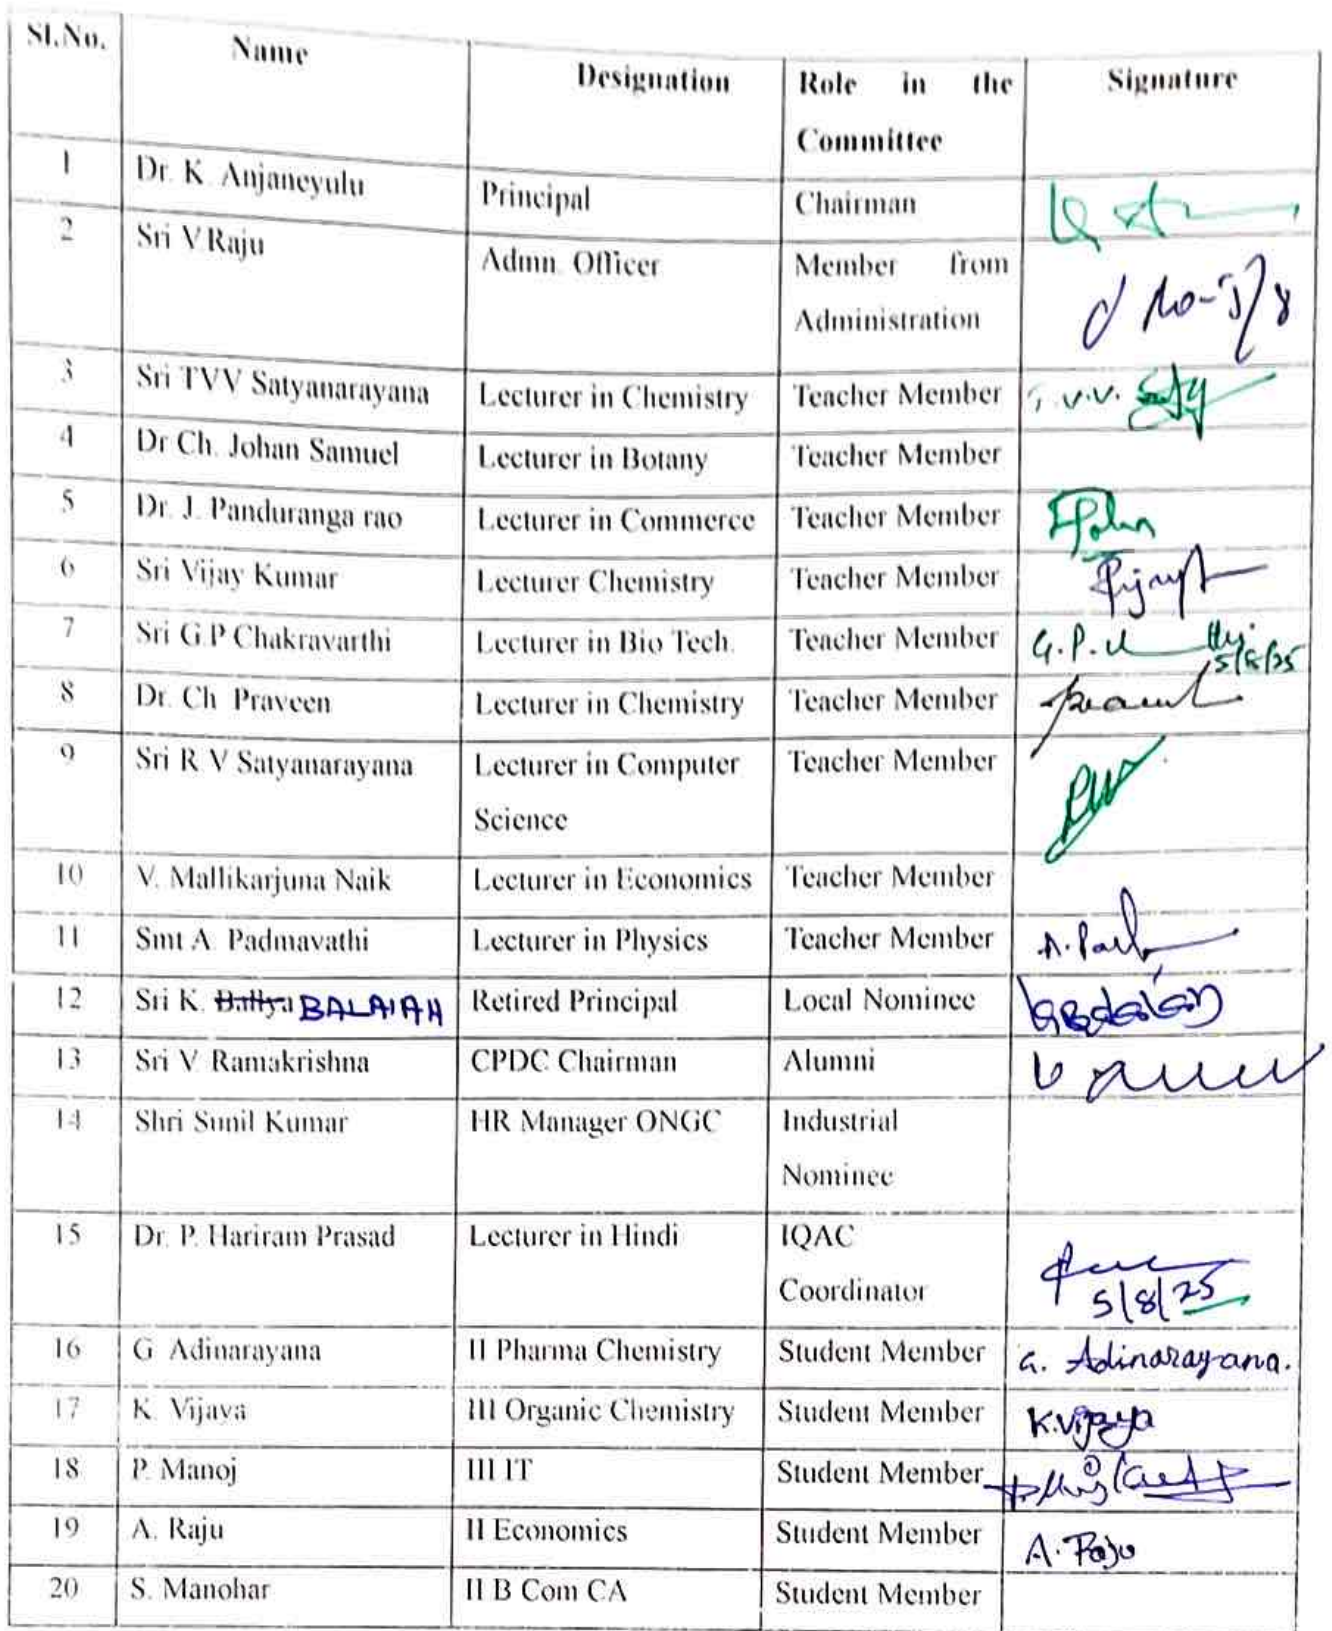 Sl.No. Name Designation Role in the Committee Signature
1 Dr. K. Anjaneyulu Principal Chairman
2 Sri V.Raju Admn. Officer Member from Administration
3 Sri TVV Satyanarayana Lecturer in Chemistry Teacher Member T.V.V. Saty
4 Dr Ch. Johan Samuel Lecturer in Botany Teacher Member
5 Dr. J. Panduranga rao Lecturer in Commerce Teacher Member
6 Sri Vijay Kumar Lecturer Chemistry Teacher Member
7 Sri G.P Chakravarthi Lecturer in Bio Tech. Teacher Member G.P. 5/8/25
8 Dr. Ch. Praveen Lecturer in Chemistry Teacher Member
9 Sri R V Satyanarayana Lecturer in Computer Science Teacher Member
10 V. Mallikarjuna Naik Lecturer in Economics Teacher Member
11 Smt A. Padmavathi Lecturer in Physics Teacher Member
12 Sri K. BALAIAH Retired Principal Local Nominee
13 Sri V. Ramakrishna CPDC Chairman Alumni
14 Shri Sunil Kumar HR Manager ONGC Industrial Nominee
15 Dr. P. Hariram Prasad Lecturer in Hindi IQAC Coordinator 5/8/25
16 G Adinarayana II Pharma Chemistry Student Member G. Adinarayana.
17 K. Vijaya III Organic Chemistry Student Member K.Vijaya
18 P. Manoj III IT Student Member
19 A. Raju II Economics Student Member A. Raju
20 S. Manohar II B Com CA Student Member